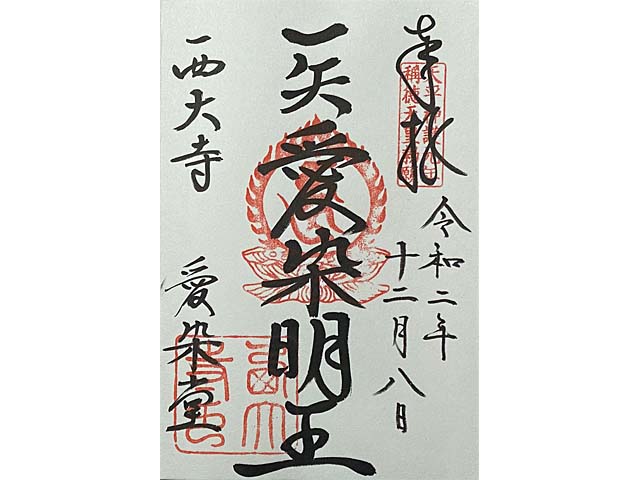 奉拝
令和二年
十二月八日
一矢愛染明王
西大寺
愛染堂